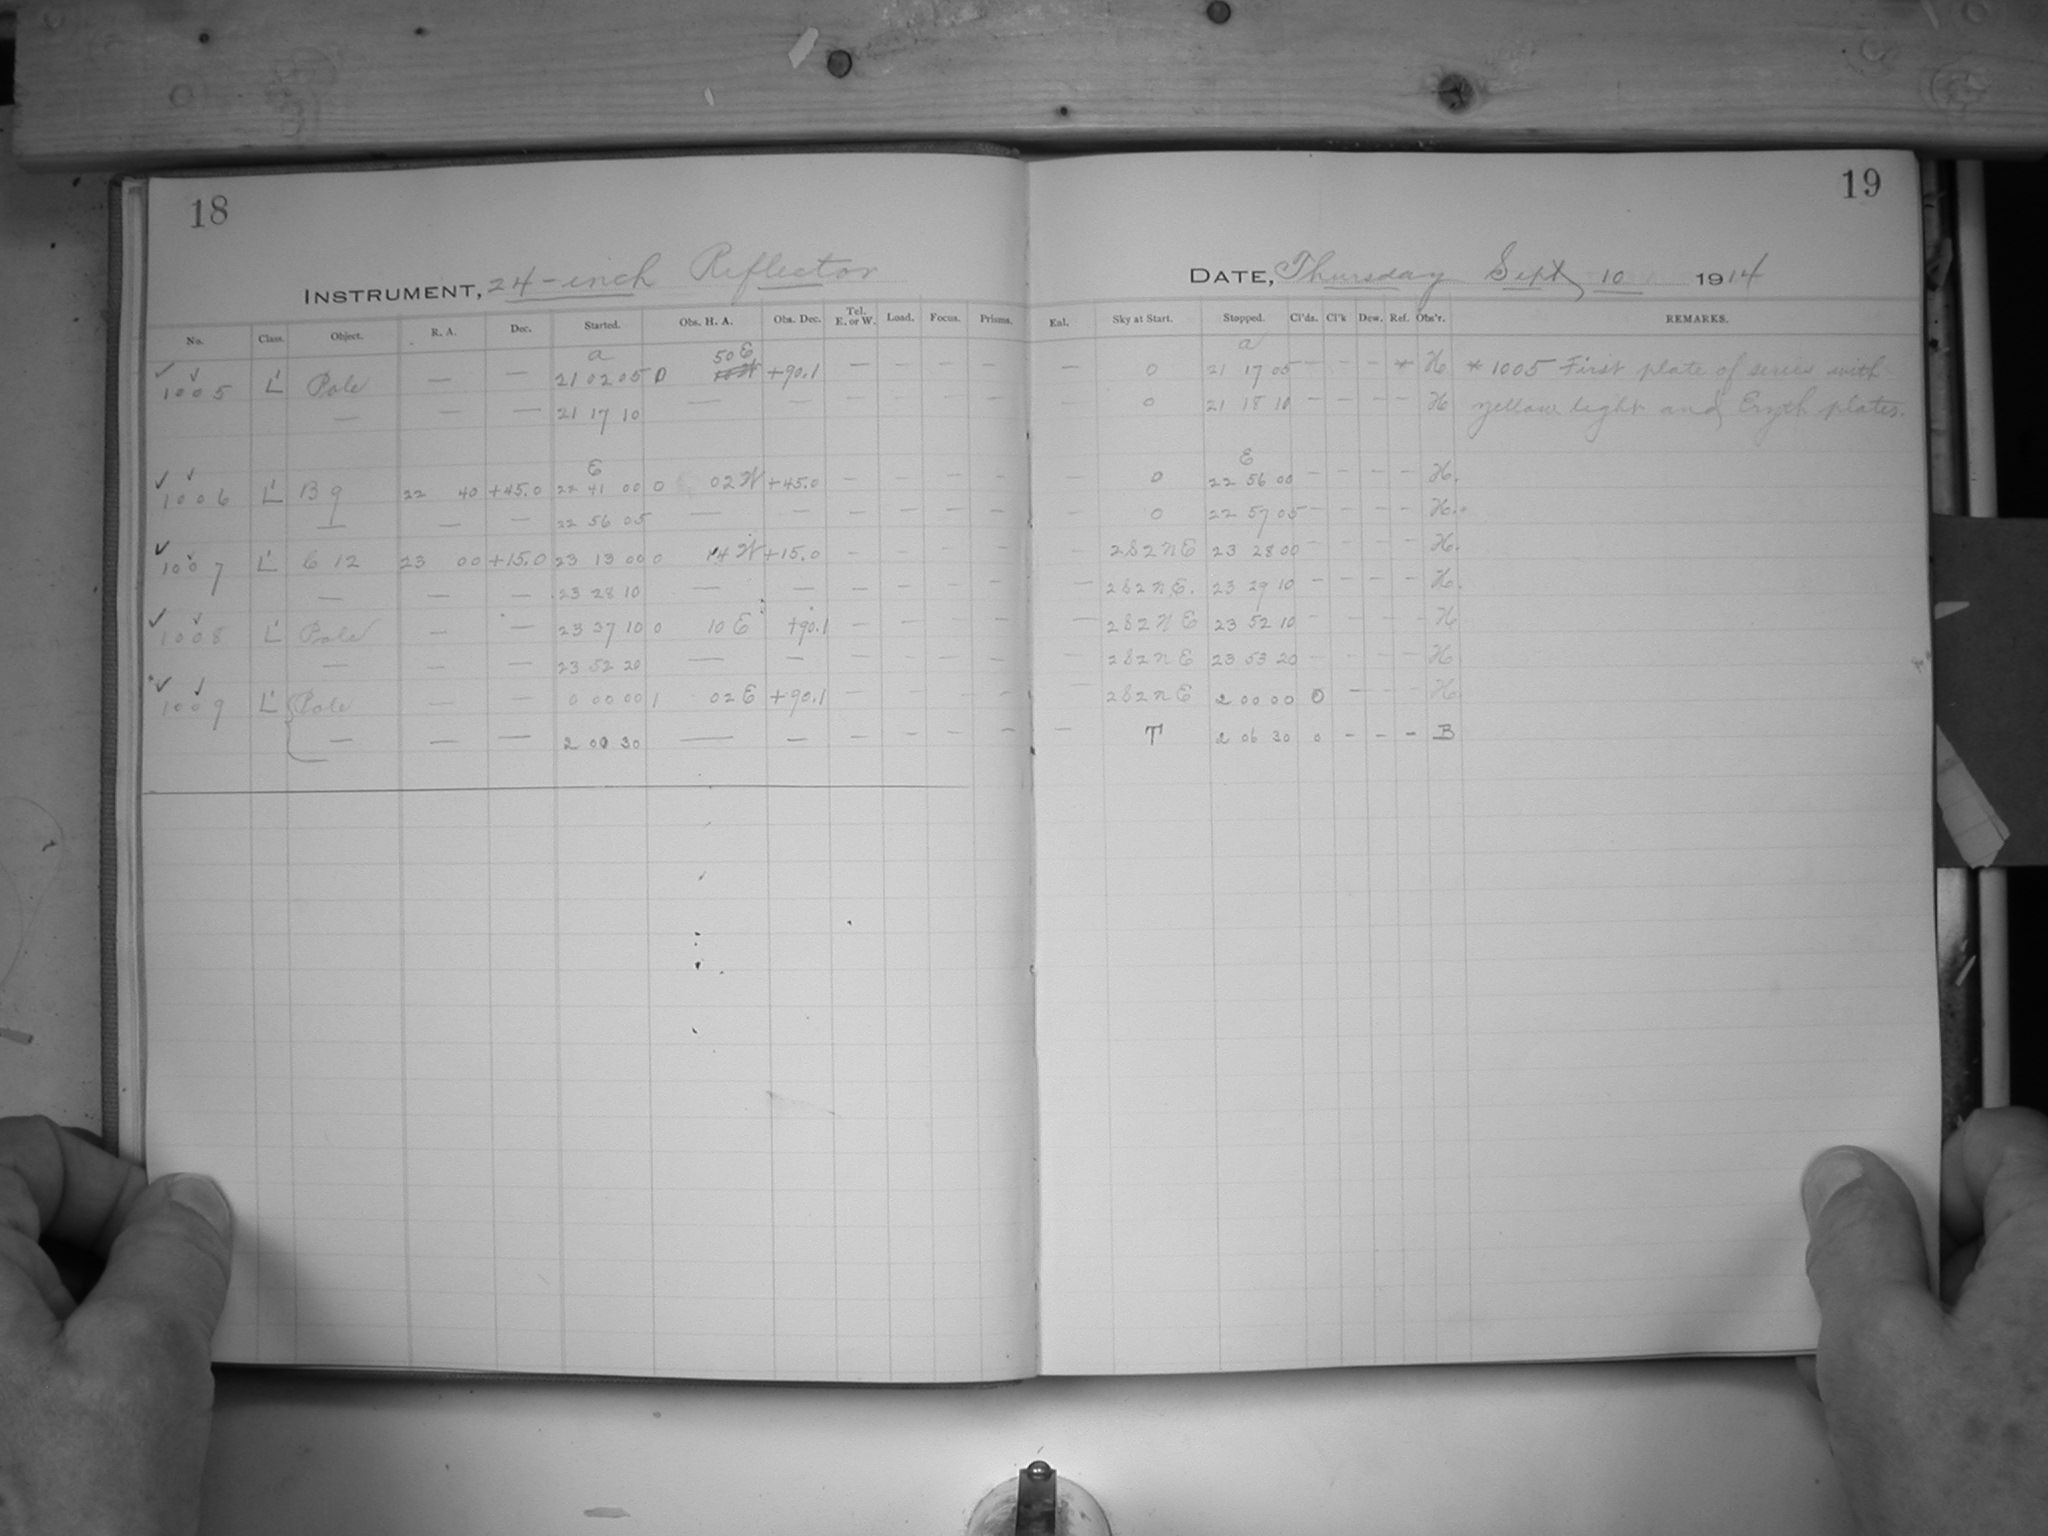 18
INSTRUMENT, 24-inch Reflector
No. Class. Object. R. A. Dec. Started. Obs. H. A. Obs. Dec. Tel. E. or W. Load. Focus. Prisms.
a 50 E
1005 L' Pole — — 21 02 05 0 +90.1 — — — —
— — — 21 17 10 — — — — — —
E
1006 L' B 9 22 40 +45.0 22 41 00 0 02 W +45.0 — — — —
— — — 22 56 05 — — — — — —
1007 L' C 12 23 00 +15.0 23 13 00 0 14 W +15.0 — — — —
— — — 23 28 10 — — — — — —
1008 L' Pole — — 23 37 10 0 10 E +90.1 — — — —
— — — 23 52 20 — — — — — —
1009 L' Pole — — 0 00 00 1 02 E +90.1 — — — —
— — — 2 00 30 — — — — — —
19
DATE, Thursday Sept 10 1914
Eal. Sky at Start. Stopped. Cl'ds. Cl'k Dew. Ref. Obs'r. REMARKS.
a
— 0 21 17 05 — — — * H * 1005 First plate of series with
— 0 21 18 10 — — — — H yellow light and Eryth plates.
E
— 0 22 56 00 — — — — H.
— 0 22 57 05 — — — — H.
— 2S2NE 23 28 00 — — — — H.
— 2S2NE. 23 29 10 — — — — H.
— 2S2NE 23 52 10 — — — — H
— 2S2NE 23 53 20 — — — — H
— 2S2NE 2 00 00 0 — — — H
— T 2 06 30 0 — — — B